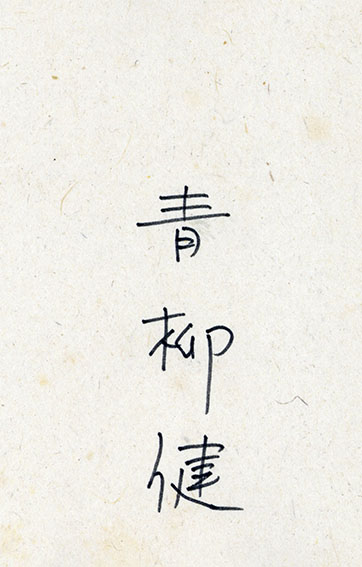 青柳健